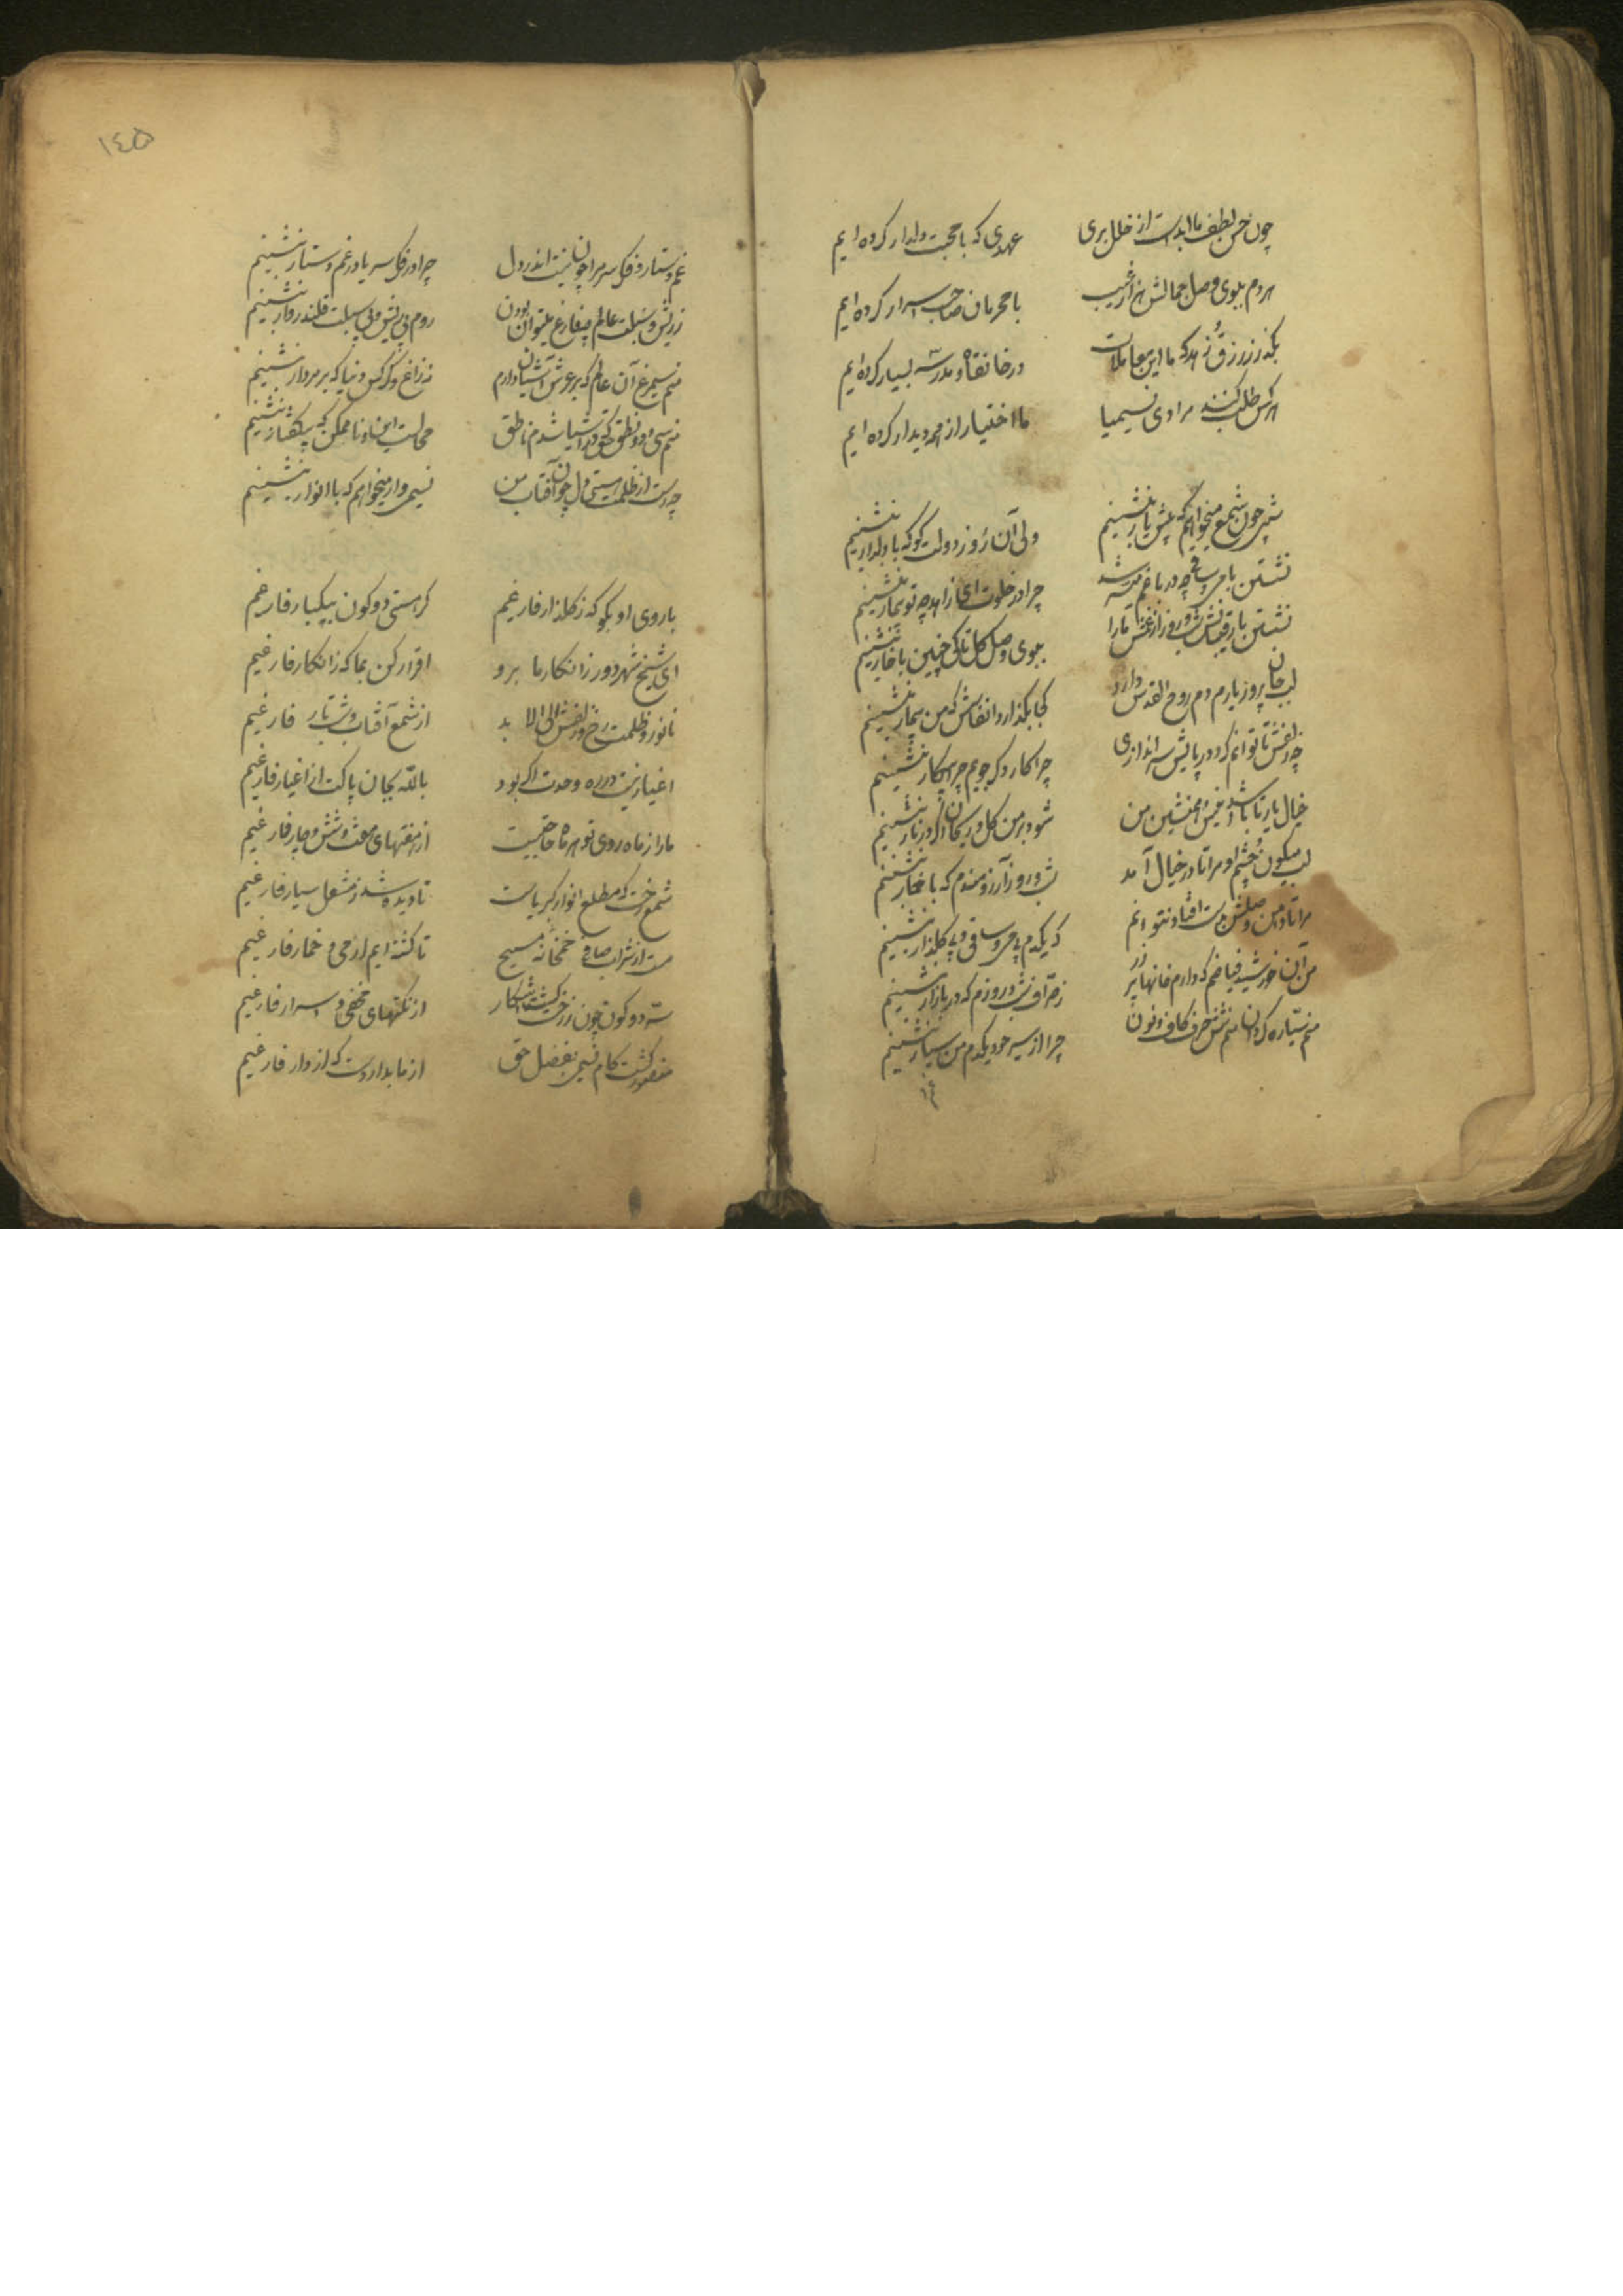 چون حسن لطف ما ابدست از خلل بری عهدی که با محبت دلدار کرده ایم
هر دم ببوی وصل جمالش هزار شب با محرمان صاحب اسرار کرده ایم
بگذر ز زرق زهد که ما این معاملات در خانقاه و مدرسه بسیار کرده ایم
هر کس طلب کنند مرادی نسیمیا ما اختیار از همه دیدار کرده ایم
شبی چون شمع میخواهم که پیش یار بنشینم ولی آن روز دولت کو که با دلدار بنشینم
نشستن با می و ساقی چه در باغم میسر شد چرا در خلوت ای زاهد چه تو بیمار بنشینم
نشستن با رقیبانش شب و روز از غمش تا را ببوی وصل گل تا کی چنین با خار بنشینم
لب جان پرور یارم دم روح القدس دارد کجا بگذارد انفاسش که من بیمار بنشینم
چو زلفش تا توانم کرد در پایش سر اندازی چرا کار دگر جویم چرا بیکار بنشینم
خیال یار تا باشد انیس و همنشین من شود بر من گل و ریحان اگر در نار بنشینم
لب میگون و چشم او مرا تا در خیال آمد شب و روز آرزومندم که با خمار بنشینم
مرا تا دامن وصلش بدست افتاد نتوانم که یکدم بی می و ساقی و بی گلذار بنشینم
من آن خورشید فیاضم که دارم خانها پر زر نه صرافم شب و روزم که در بازار بنشینم
منم سیاره گردان منم شش حرف کاف و نون چرا از سیر خود یکدم من سیار بنشینم
١٤٥
غم دستار و فکر سر مرا چون نیست اندر دل چرا در فکر سر یا در غم دستار بنشینم
ز ریش و سبلت عالم چه فارغ میتوان بودن روم بی ریش و بی سبلت قلندروار بنشینم
منم سیمرغ آن عالم که بر عرش آشیان دارم نه زاغ و کرکس دنیا که بر مردار بنشینم
منم سی و دو نطق حق که در اشیا شدم ناطق محالست این و ناممکن که بیگفتار بنشینم
چه رست از ظلمت هستی دل چون آفتاب من نسیمی وار میخواهم که با انوار بنشینم
با روی او بگو که ز گلذار فارغیم کز هستی دو کون بیکبار فارغیم
ای شیخ شهر دور ز انکار ما برو اقرار کن بما که ز انکار فارغیم
تا نور و ظلمت رخ و زلفش الی الابد از شمع آفتاب و شب تار فارغیم
اغیار نیست در ره وحدت اگر بود بالله بجان پاکت از اغیار فارغیم
ما را ز ماه روی تو هر ماه حاجتیست از هفتهای هفت و شش و چار فارغیم
شمع رخت که مطلع انوار کبریاست تا دیده شد ز مشعل سیار فارغیم
مست از شراب صافی خمخانه مسیح تا گشته ایم از می و خمار فارغیم
سر دو کون چون ز رخت گشت آشکار از نکتهای مخفی و اسرار فارغیم
منصور گشت کام نسیمی بفضل حق از ما بدار دست که از دار فارغیم